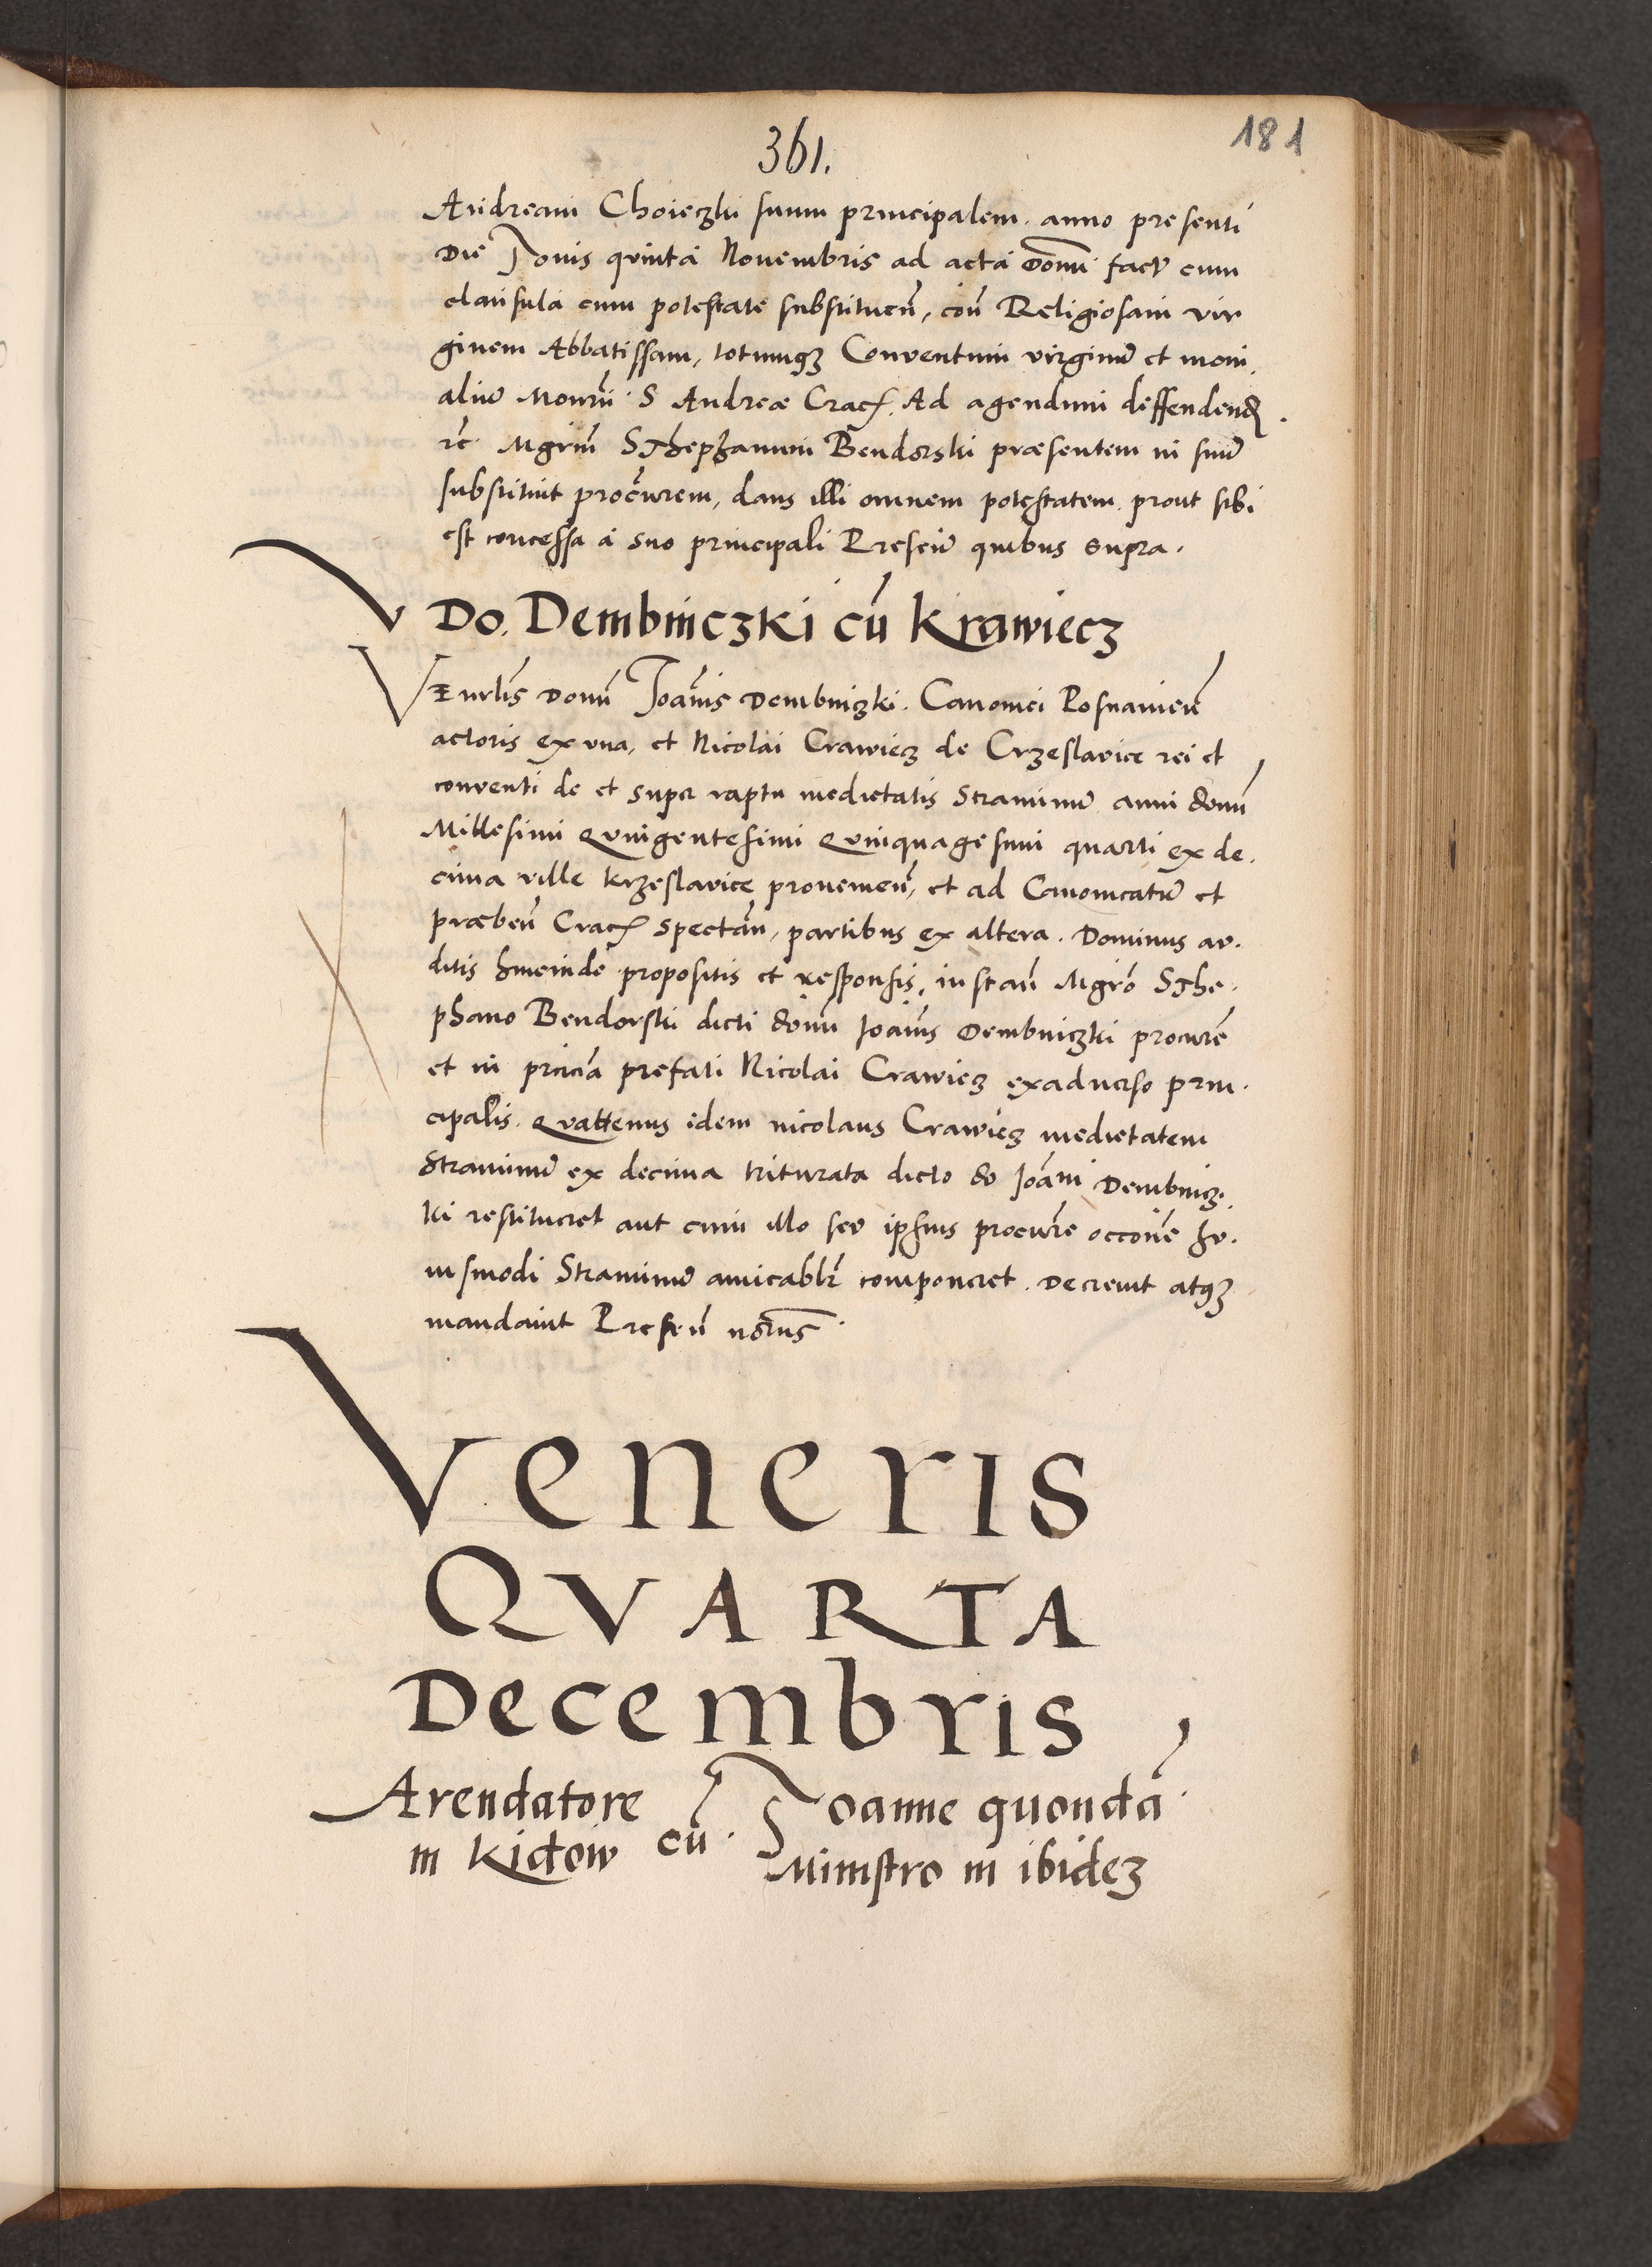 361.
181
Andream Choieczki suum principalem. anno presenti
Die Jouis quinta Nouembris ad acta domi. fact cum
clausula cum potestate substituen, con Religiosam vir
ginem Abbatissam, totumqz Conventum virginu et moni.
aliu Monrii S Andreæ Crac. Ad agendum deffendend.
rc. Mgrm SThephanum Bendorski præsentem in suu
substituit procurem, dans illi omnem potestatem prout sibi
est concessa a suo principali Presen quibus supra.
Do. Dembinczki cu Krawiecz
Venrlis Doni Joanis Dembniczki. Canonici Posnanien
actoris ex vna, et Nicolai Crawiecz de Crzeslavice rei et
conventi de et super raptu medietatis Straminu anni doni
Millesimi Quingentesimi Quinquagesimi quarti ex de.
cima ville Krzeslavice prouenien, et ad Canonicatu et
præben Crac. spectan, partibus ex altera. Dominus au.
ditis hincinde propositis et responsis, instan Mgro SThe.
phano Bendorski dicti doni Joanis Dembniczki procure
et in princia prefati Nicolai Crawiecz exaduerso prin.
cipalis. Quattenus idem nicolaus Crawiecz medietatem
Straminu ex decima triturata dicto do Joani Dembnicz.
ki restitueret aut cum illo seu ipsius procure occone hu.
iusmodi Straminu amicablr componeret. Decreuit atqz
mandauit Presen
Veneris
QVARTA
Decembris
Arendatore cu. Joanne quonda
in Kidow Ministro in ibidez